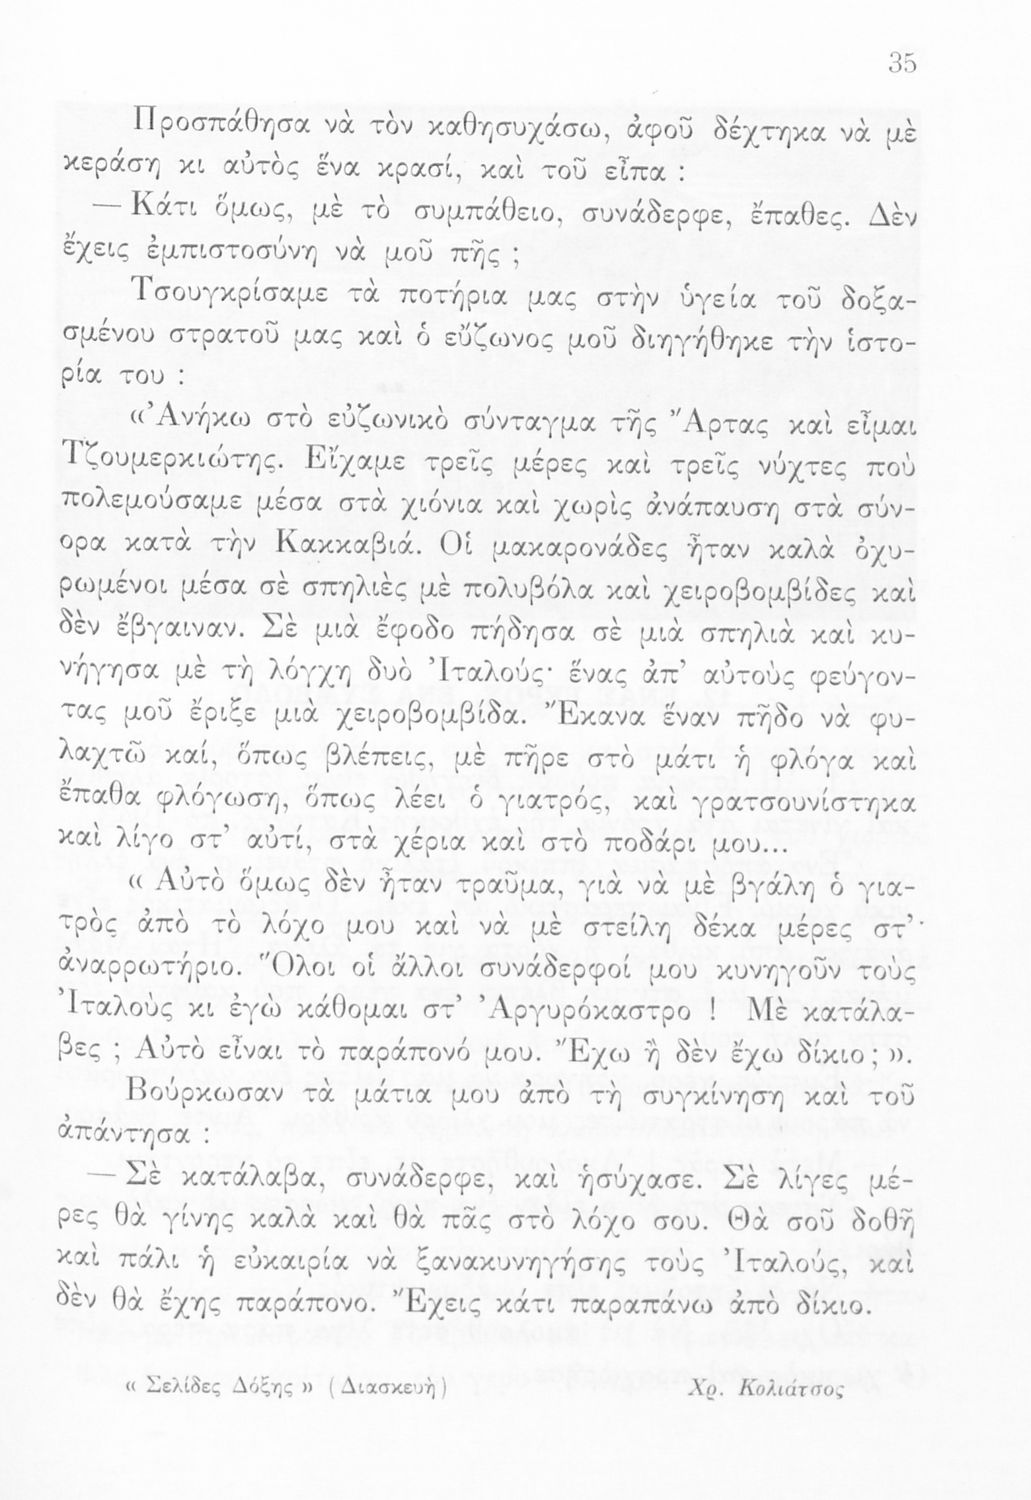 35
Προσπάθησα νὰ τὸν καθησυχάσω, ἀφοῦ δέχτηκα νὰ μὲ
κεράση κι αὐτὸς ἕνα κρασί, καὶ τοῦ εἶπα :
— Κάτι ὅμως, μὲ τὸ συμπάθειο, συνάδερφε, ἔπαθες. Δὲν
ἔχεις ἐμπιστοσύνη νὰ μοῦ πῆς ;
Τσουγκρίσαμε τὰ ποτήρια μας στὴν ὑγεία τοῦ δοξα-
σμένου στρατοῦ μας καὶ ὁ εὔζωνος μοῦ διηγήθηκε τὴν ἱστο-
ρία του :
«Ἀνήκω στὸ εὐζωνικὸ σύνταγμα τῆς Ἄρτας καὶ εἶμαι
Τζουμερκιώτης. Εἴχαμε τρεῖς μέρες καὶ τρεῖς νύχτες ποὺ
πολεμούσαμε μέσα στὰ χιόνια καὶ χωρὶς ἀνάπαυση στὰ σύν-
ορα κατὰ τὴν Κακκαβιά. Οἱ μακαρονάδες ἦταν καλὰ ὀχυ-
ρωμένοι μέσα σὲ σπηλιὲς μὲ πολυβόλα καὶ χειροβομβίδες καὶ
δὲν ἔβγαιναν. Σὲ μιὰ ἔφοδο πήδησα σὲ μιὰ σπηλιὰ καὶ κυ-
νήγησα μὲ τὴ λόγχη δυὸ Ἰταλούς· ἕνας ἀπ’ αὐτοὺς φεύγον-
τας μοῦ ἔριξε μιὰ χειροβομβίδα. Ἔκανα ἕναν πῆδο νὰ φυ-
λαχτῶ καί, ὅπως βλέπεις, μὲ πῆρε στὸ μάτι ἡ φλόγα καὶ
ἔπαθα φλόγωση, ὅπως λέει ὁ γιατρός, καὶ γρατσουνίστηκα
καὶ λίγο στ’ αὐτί, στὰ χέρια καὶ στὸ ποδάρι μου...
« Αὐτὸ ὅμως δὲν ἦταν τραῦμα, γιὰ νὰ μὲ βγάλη ὁ για-
τρὸς ἀπὸ τὸ λόχο μου καὶ νὰ μὲ στείλη δέκα μέρες στ’
ἀναρρωτήριο. Ὅλοι οἱ ἄλλοι συνάδερφοί μου κυνηγοῦν τοὺς
Ἰταλοὺς κι ἐγὼ κάθομαι στ’ Ἀργυρόκαστρο ! Μὲ κατάλα-
βες ; Αὐτὸ εἶναι τὸ παράπονό μου. Ἔχω ἢ δὲν ἔχω δίκιο; ».
Βούρκωσαν τὰ μάτια μου ἀπὸ τὴ συγκίνηση καὶ τοῦ
ἀπάντησα :
— Σὲ κατάλαβα, συνάδερφε, καὶ ἡσύχασε. Σὲ λίγες μέ-
ρες θὰ γίνης καλὰ καὶ θὰ πᾶς στὸ λόχο σου. Θὰ σοῦ δοθῆ
καὶ πάλι ἡ εὐκαιρία νὰ ξανακυνηγήσης τοὺς Ἰταλούς, καὶ
δὲν θὰ ἔχης παράπονο. Ἔχεις κάτι παραπάνω ἀπὸ δίκιο.
« Σελίδες Δόξης » (Διασκευὴ) Χρ. Κολιάτσος